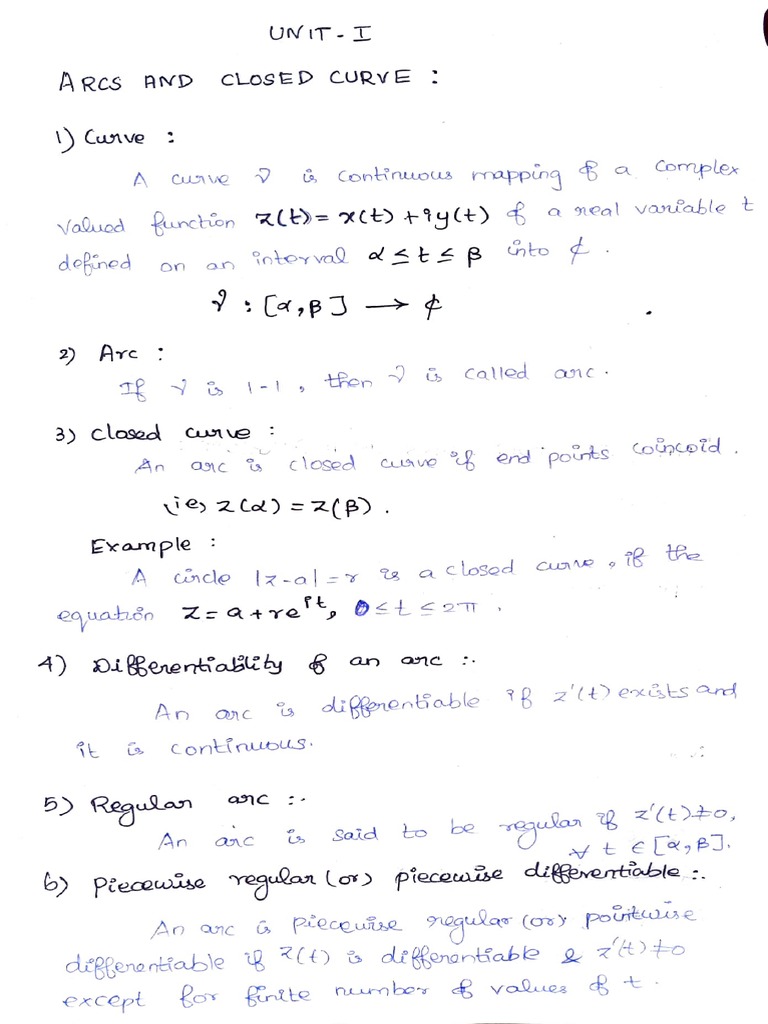 UNIT - I
ARCS AND CLOSED CURVE :
1) Curve :
A curve γ is continuous mapping of a complex
valued function z(t) = x(t) + iy(t) of a real variable t
defined on an interval α ≤ t ≤ β into ₵.
γ : [α, β] → ₵
2) Arc :
If γ is 1-1, then γ is called arc.
3) Closed curve :
An arc is closed curve if end points coincoid.
(ie) z(α) = z(β).
Example :
A circle |z-a| = r is a closed curve, if the
equation z = a + re^{it}, 0 ≤ t ≤ 2π.
4) Differentiability of an arc :.
An arc is differentiable if z'(t) exists and
it is continuous.
5) Regular arc :.
An arc is said to be regular if z'(t) ≠ 0,
∀ t ∈ [α, β].
6) Piecewise regular (or) piecewise differentiable :.
An arc is piecewise regular (or) pointwise
differentiable if z(t) is differentiable & z'(t) ≠ 0
except for finite number of values of t.